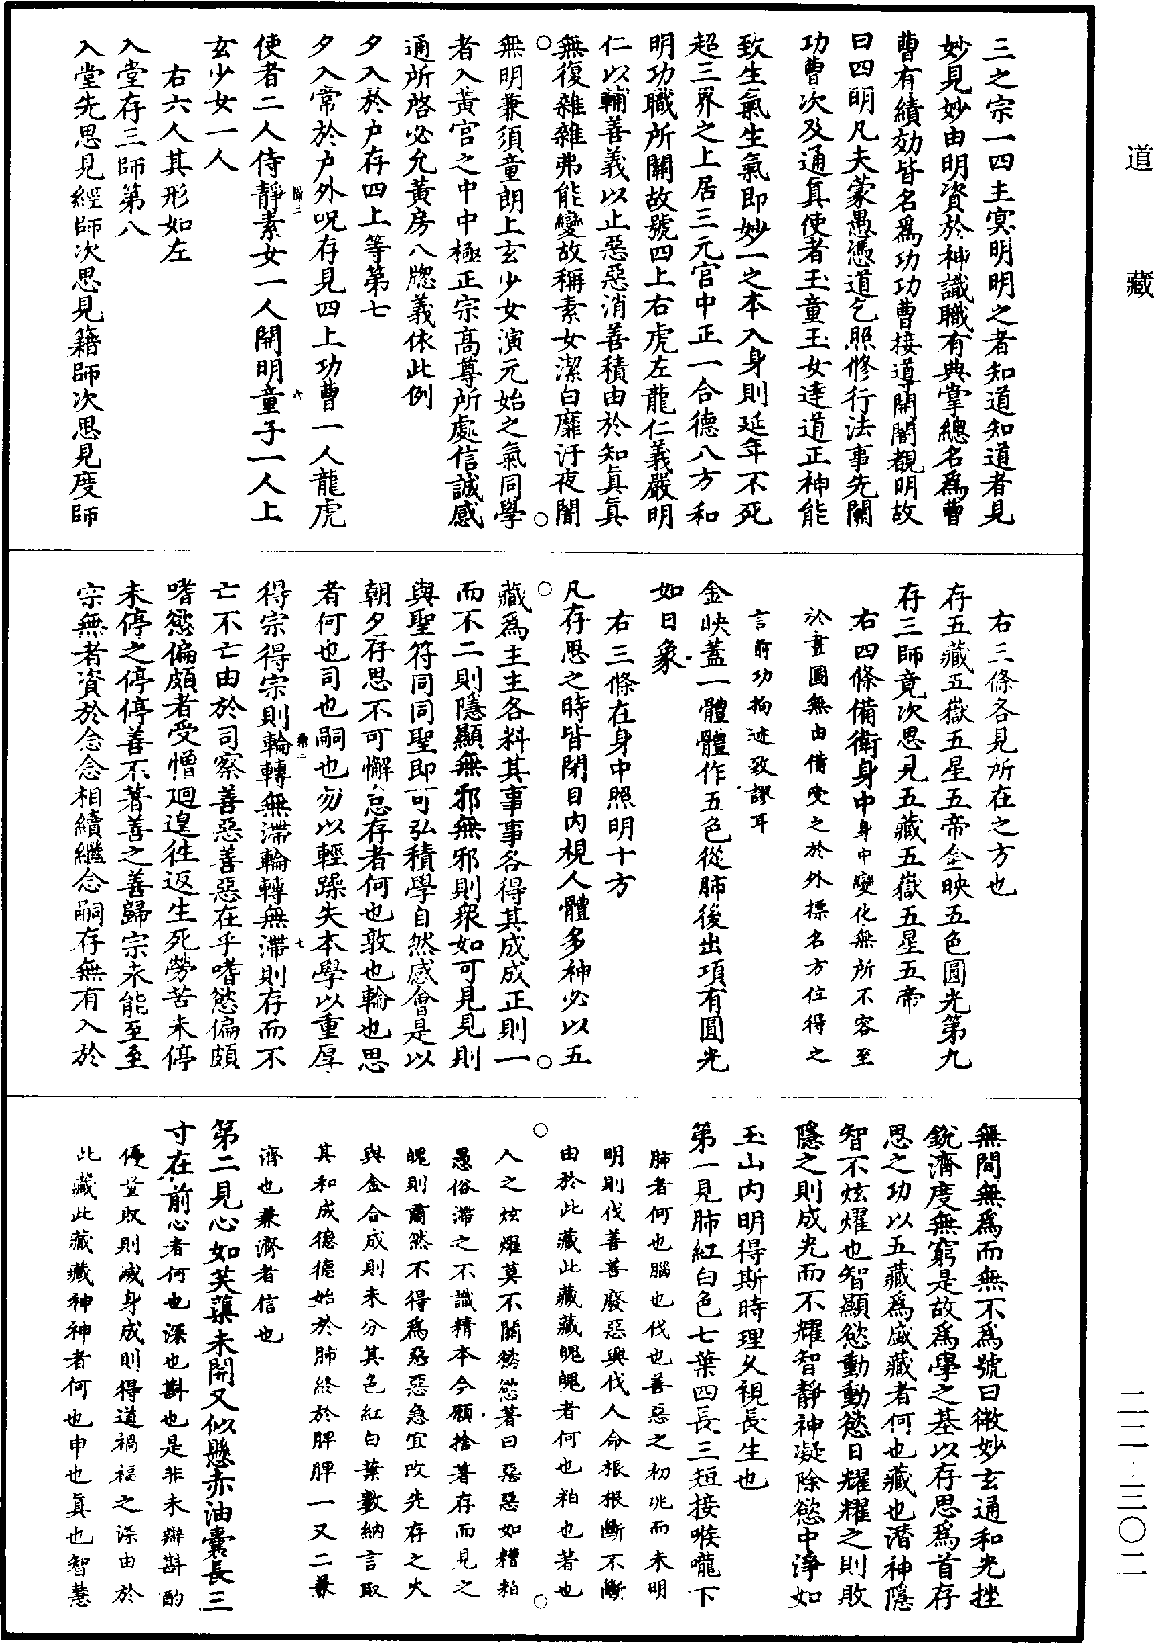 道藏
三之宗一四主冥明明之者知道知道者見
妙見妙由明資於神識職有典掌總名為曹
曹有績効皆名為功功曹接導開闇覩明故
曰四明凡夫蒙愚憑道乞照修行法事先關
功曹次及通真使者玉童玉女達道正神能
致生氣生氣即妙一之本入身則延年不死
超三界之上居三元宮中正一合德八方和
明功職所關故號四上右虎左龍仁義嚴明
仁以輔善義以止惡惡消善積由於知真真
無復雜雜弗能變故稱素女潔白靡汙夜闇
無明兼須童朗上玄少女演元始之氣同學
者入黃宮之中中極正宗高尊所處信誠感
通所啓必允黃房八牎義依此例
夕入於户存四上等第七
夕入常於户外呪存見四上功曹一人龍虎
使者二人侍靜素女一人開明童子一人上
玄少女一人
右六人其形如左
入堂存三師第八
入堂先思見經師次思見籍師次思見度師
右三條各見所在之方也
存五藏五嶽五星五帝金映五色圓光第九
存三師竟次思見五藏五嶽五星五帝
右四條備衛身中身中變化無所不容至
於畫圖無由備受之於外標名方位得之
言前功拘迹致謬耳
金映蓋一體體作五色從肺後出項有圓光
如日象
右三條在身中照明十方
凡存思之時皆閉目內視人體多神必以五
藏為主主各料其事事各得其成成正則一
而不二則隱顯無邪無邪則衆如可見見則
與聖符同同聖即可弘積學自然感會是以
朝夕存思不可懈怠存者何也敦也輪也思
者何也司也嗣也勿以輕躁失本學以重厚
得宗得宗則輪轉無滯輪轉無滯則存而不
亡不亡由於司察善惡善惡在乎嗜慾偏頗
嗜慾偏頗者受憎廻遑徃返生死勞苦未停
未停之停停善不著善之善歸宗未能至至
宗無者資於念念相續繼念嗣存無有入於
無間無為而無不為號曰微妙玄通和光挫
銳濟度無窮是故為學之基以存思為首存
思之功以五藏為盛藏者何也藏也潛神隱
智不炫燿也智顯慾動動慾日耀耀之則敗
隱之則成光而不耀智靜神凝除慾中淨如
玉山內明得斯時理久視長生也
第一見肺紅白色七葉四長三短接喉嚨下
肺者何也腦也伐也善惡之初兆而未明
明則伐善善廢惡興伐人命根根斷不斷
由於此藏此藏藏魄魄者何也粕也著也
人之炫燿莫不關慾慾著曰惡惡如糟粕
愚俗滯之不識精本今願捨著存而見之
魄則肅然不得為惡惡急宜改先存之火
與金合成則未分其色紅白葉數納言取
其和成德德始於肺終於脾脾一又二兼
濟也兼濟者信也
第二見心如芙蕖未開又似懸赤油囊長三
寸在前心者何也深也斟也是非未辯斟酌
優量取則滅身成則得道禍福之深由於
此藏此藏藏神神者何也申也真也智慧
二二·三〇二